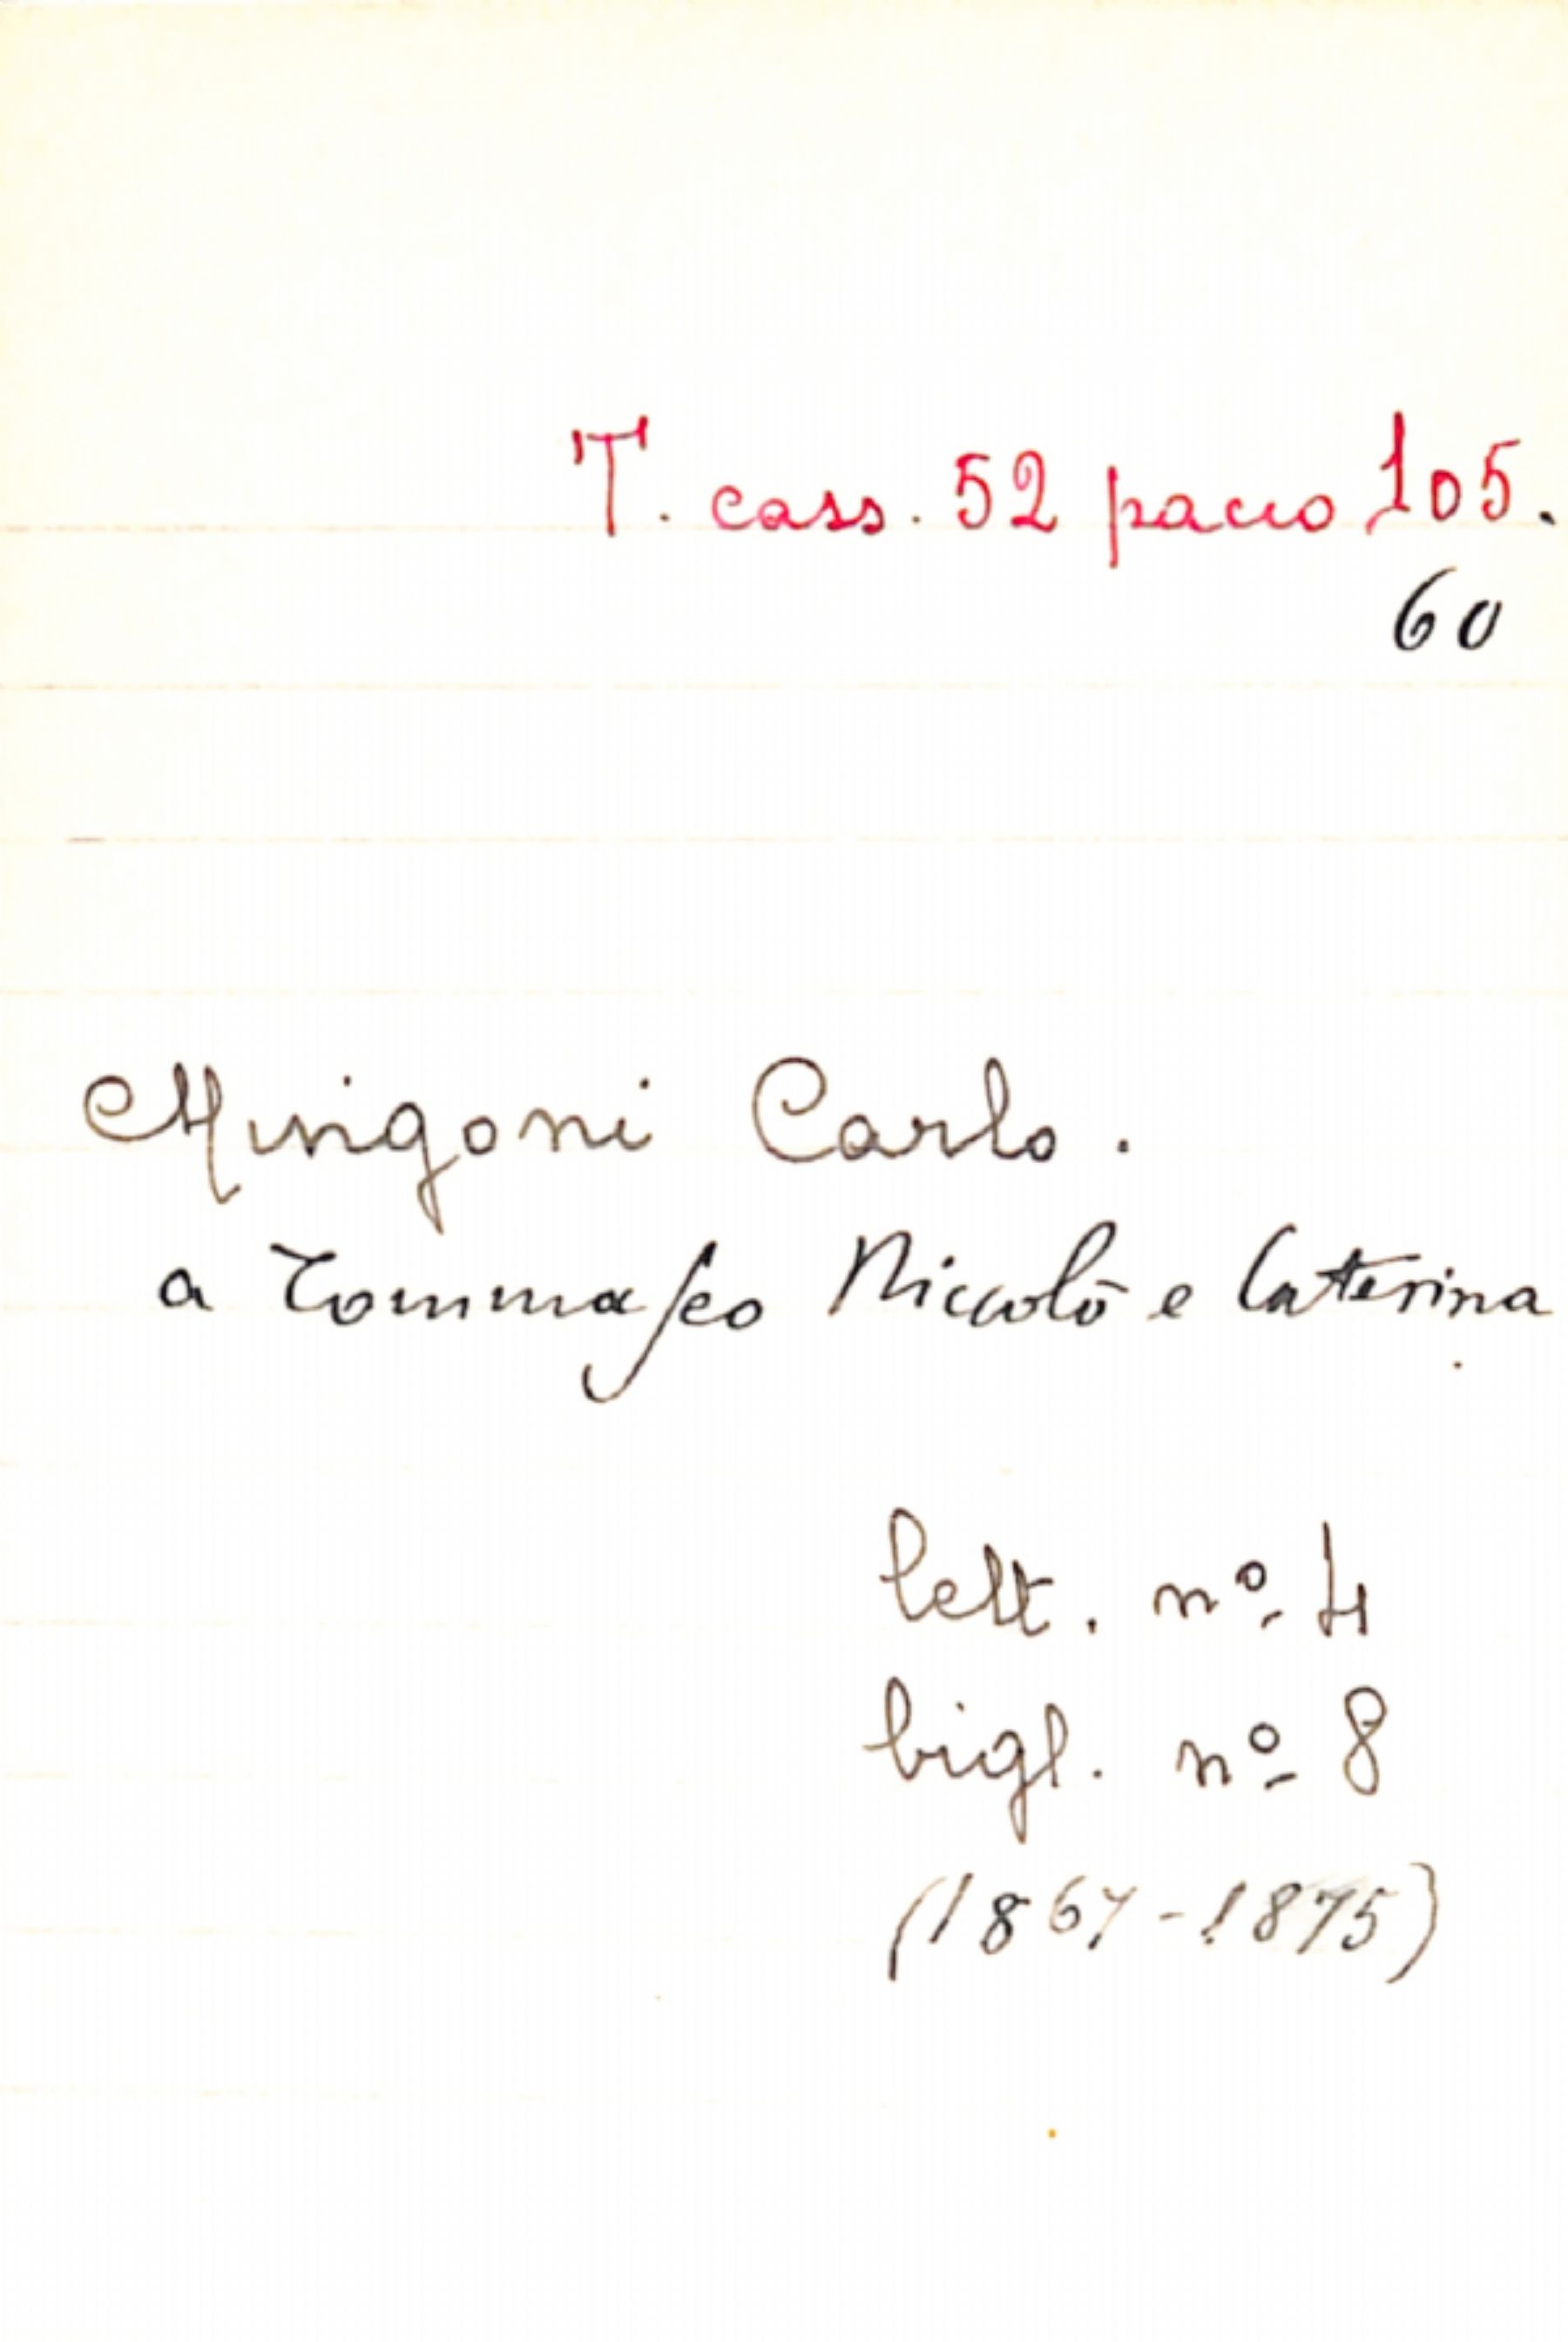 T. cass. 52 pacco 105.
60
Mingoni Carlo.
a Tommaseo Niccolò e Caterina
lett. nº 4
bigl. nº 8
(1867-1875)